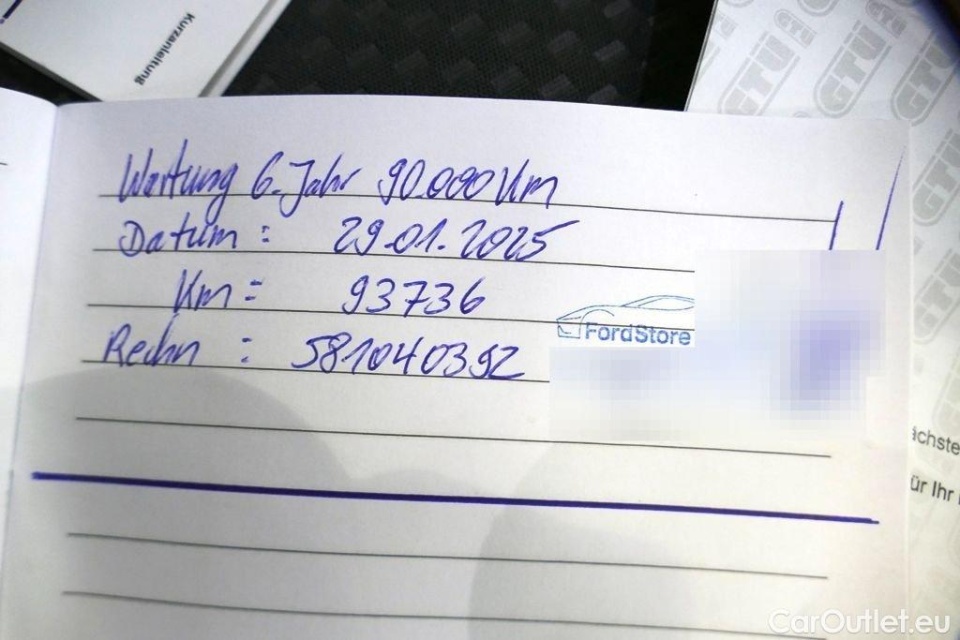 Kurzanleitung
GTÜ
GTÜ
GTÜ
GTÜ
Wartung 6. Jahr 90.000 Km
Datum : 29.01.2025
Km = 93736
FordStore
Rechn : 581040392
ächste
ür Ihr
CarOutlet.eu